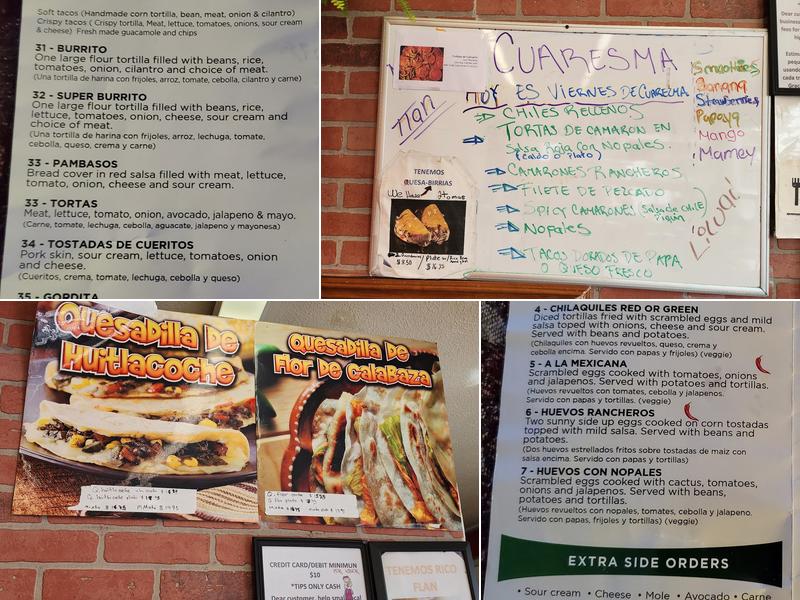 Soft tacos (Handmade corn tortilla, bean, meat, onion & cilantro)
Crispy tacos ( Crispy tortilla, Meat, lettuce, tomatoes, onions, sour cream
& cheese) Fresh made guacamole and chips
31 - BURRITO
One large flour tortilla filled with beans, rice,
tomatoes, onion, cilantro and choice of meat.
(Una tortilla de harina con frijoles, arroz, tomate, cebolla, cilantro y carne)
32 - SUPER BURRITO
One large flour tortilla filled with beans, rice,
lettuce, tomatoes, onion, cheese, sour cream and
choice of meat.
(Una tortilla de harina con frijoles, arroz, lechuga, tomate,
cebolla, queso, crema y carne)
33 - PAMBASOS
Bread cover in red salsa filled with meat, lettuce,
tomato, onion, cheese and sour cream.
33 - TORTAS
Meat, lettuce, tomato, onion, avocado, jalapeno & mayo.
(Carne, tomate, lechuga, cebolla, aguacate, jalapeno y mayonesa)
34 - TOSTADAS DE CUERITOS
Pork skin, sour cream, lettuce, tomatoes, onion
and cheese.
(Cueritos, crema, tomate, lechuga, cebolla y queso)
35 - GORDITA
CUARESMA
HOY ES VIERNES DE CUARESMA
Flan
CHILES RELLENOS
TORTAS DE CAMARON EN
Salsa Roja con Nopales.
(Caldo o Plato)
CAMARONES RANCHEROS
FILETE DE PESCADO
SPICY CAMARONES (Salsa de CHILE
Piquin)
Nopales
TACOS DORADOS DE PAPA
O QUESO FRESCO
Smoothies
Banana
Strawberries
Papaya
Mango
Mamey
TENEMOS
QUESA-BIRRIAS
We have
$16.75
Dear cu
Quesadilla De
Huitlacoche
Quesadilla De
Flor De Calabaza
CREDIT CARD/DEBIT MINIMUN
$10
*TIPS ONLY CASH
Dear customer, help small local
TENEMOS RICO
FLAN
4 - CHILAQUILES RED OR GREEN
Diced tortillas fried with scrambled eggs and mild
salsa toped with onions, cheese and sour cream.
Served with beans and potatoes.
(Chilaquiles con huevos revueltos, queso, crema y
cebolla encima. Servido con papas y frijoles) (veggie)
5 - A LA MEXICANA
Scrambled eggs cooked with tomatoes, onions
and jalapenos. Served with potatoes and tortillas.
(Huevos revueltos con tomates, cebolla y jalapenos.
Servido con papas y tortillas.) (veggie)
6 - HUEVOS RANCHEROS
Two sunny side up eggs cooked on corn tostadas
topped with mild salsa. Served with beans and
potatoes.
(Dos huevos estrellados fritos sobre tostadas de maiz con
salsa encima. Servido con papas y tortillas)
7 - HUEVOS CON NOPALES
Scrambled eggs cooked with cactus, tomatoes,
onions and jalapenos. Served with beans,
potatoes and tortillas.
(Huevos revueltos con nopales, tomates, cebolla y jalapenos.
Servido con papas, frijoles y tortillas) (veggie)
EXTRA SIDE ORDERS
• Sour cream • Cheese • Mole • Avocado • Carne